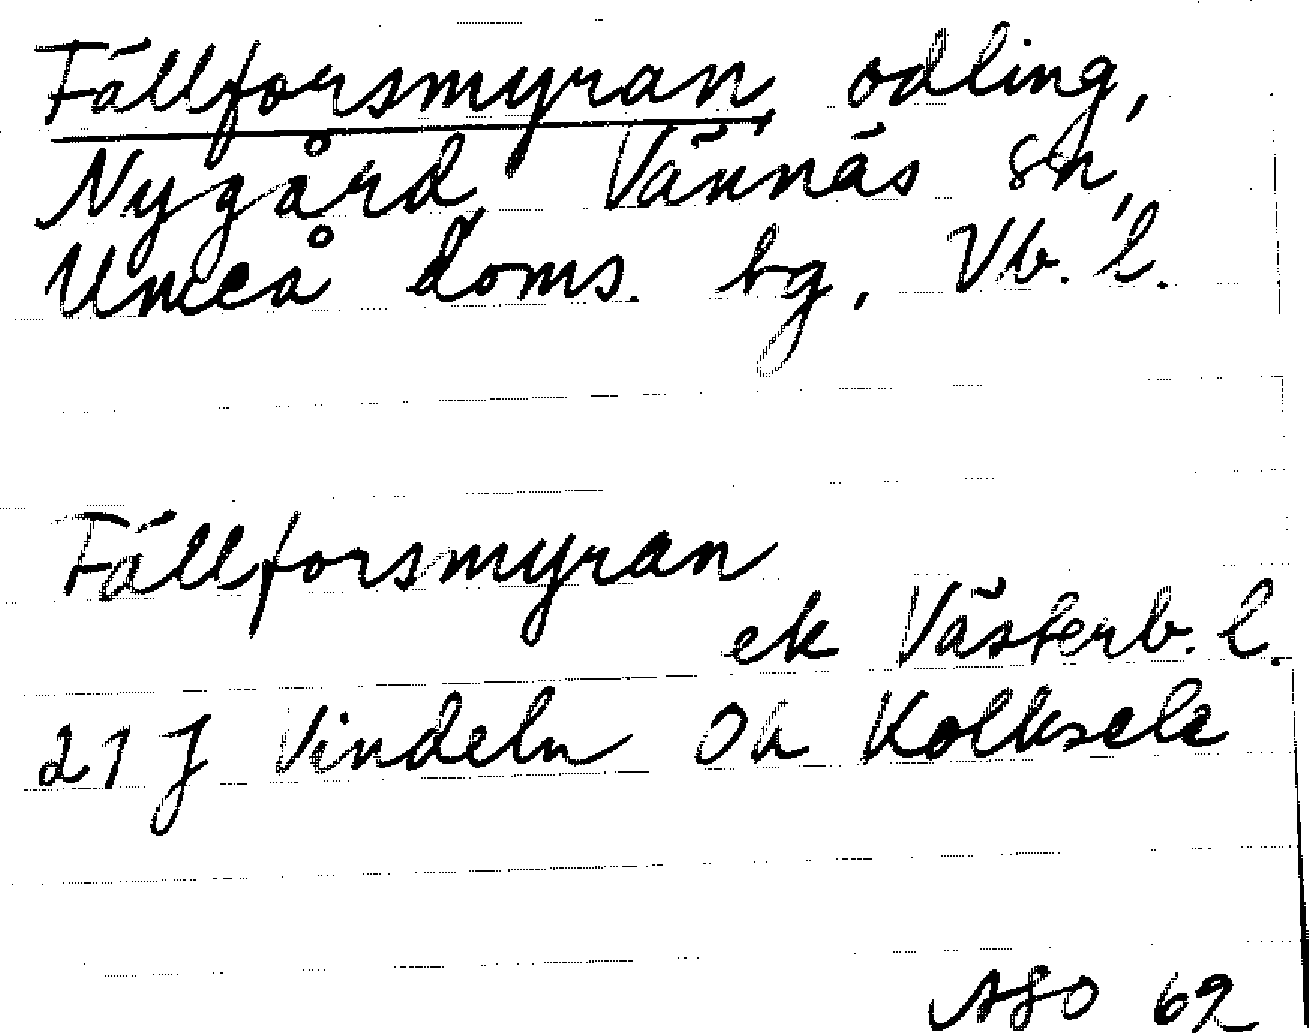 Fällforsmyran, odling,
Nygård, Vännäs sn,
Umeå doms. bg, Vb. l.
Fällforsmyran
ek Västerb. l.
21 J Vindeln Oh Kolksele
ASO 62